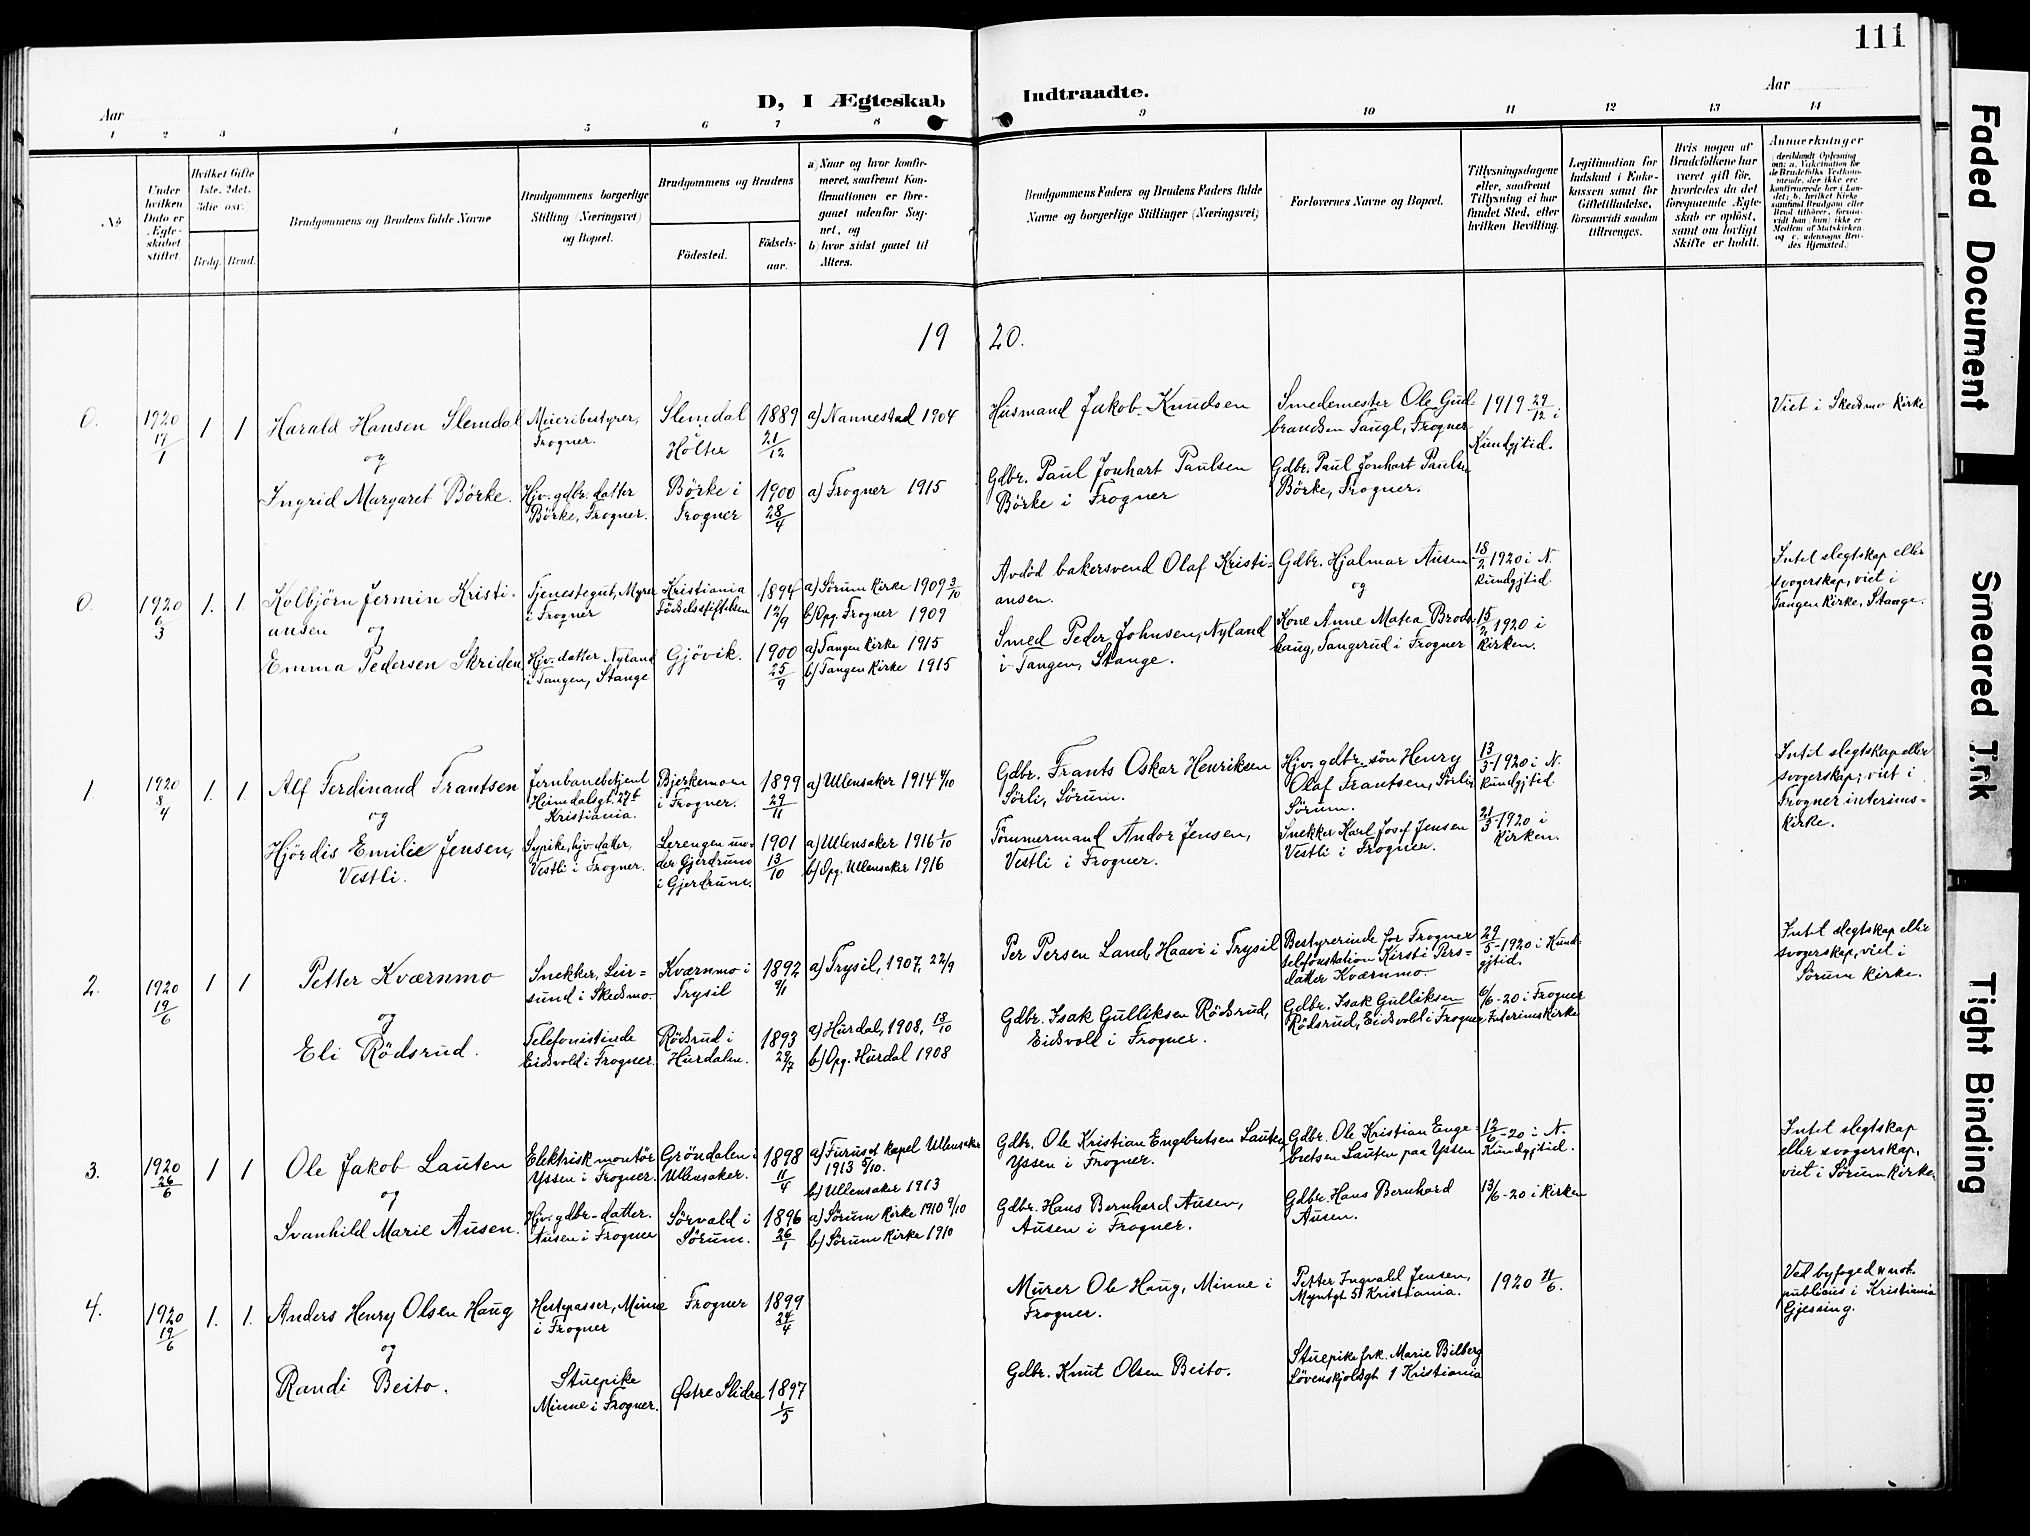 111
Aar
D, I Ægteskab Indtraadte.
Aar
1 2 3 4 5 6 7 8 9 10 11 12 13 14
No
Under hvilken Dato er Ægteskabet stiftet.
Hvilket Gifte 1ste, 2det, 3die osv.
Brdg. Brud.
Brudgommens og Brudens fulde Navne
Brudgommens borgerlige Stilling (Næringsvei) og Bopæl.
Brudgommens og Brudens
Födested.
Födsels-aar.
a) Naar og hvor konfirmeret, saafremt Konfirmationen er foregaaet udenfor Sognet, og
b) hvor sidst gaaet til Alters.
Brudgommens Faders og Brudens Faders fulde Navne og borgerlige Stillinger (Næringsvei)
Forlovernes Navne og Bopæl.
Tillysningsdagene eller, saafremt Tillysning ei har fundet Sted, efter hvilken Bevilling.
Legitimation for Indskud i Enkekassen samt for Giftetilladelse, forsaavidt saadan tiltrænges.
Hvis nogen af Brudefolkene har været gift för, hvorledes da det foregaaende Ægteskab er oplöst, samt om lovligt Skifte er holdt.
Anmærkninger
(deriblandt Oplysning om: a. Vakcination for de Brudefolks Vedkommende, der ikke ere konfirmerede her i Landet; b. hvilket Kirkesamfund Brudgom eller Brud tilhörer, forsaavidt han (hun) ikke er Medlem af Statskirken, og c. udensogns Brudes Hjemsted.)
19 20.
0.
1920 17/1
1 1
Harald Hansen Slemdal
og
Ingrid Margaret Börke.
Meieribestyrer,
Frogner.
Hjv. gdbr. datter
Börke, Frogner.
Slemdal
Holter
Börke i
Frogner
1889 21/12
1900 28/4
a) Nannestad 1904
a) Frogner 1915
Husmand Jakob Knudsen
Gdbr. Paul Jonhart Paulsen
Börke i Frogner
Smedemester Ole Gud-
brandsen Taugl, Frogner
Gdbr. Paul Jonhart Paulsen
Börke, Frogner.
1919 29/12 i
Kundgjtid.
Viet i Skedsmo Kirke
0.
1920 6/3
1. 1.
Kolbjörn Jermin Kristi-
ansen og
Emma Pedersen Skriden
Tjenestegut, Myrer
i Frogner
Hjv. datter Nyland
i Tangen, Stange
Kristiania
Födselsstiftelsen
Gjövik.
1894 12/9
1900 25/9
a) Sörum Kirke 1909 3/10
b) Opg. Frogner 1909
a) Tangen Kirke 1915
b) Tangen Kirke 1915
Avdöd bakersvend Olaf Kristi-
ansen.
Smed Peder Johnsen, Nyland
i Tangen, Stange.
Gdbr. Hjalmar Ausen
og
Kone Anne Matea Brods-
haug, Tangerud i Frogner
18/2 1920 i N.
Kundgjtid.
15/2 1920 i
Kirken.
Intet slegtskap eller
svogerskap, viet i
Tangen Kirke, Stange.
1
1920 8/4
1. 1.
Alf Ferdinand Frantsen
og
Hjördis Emilie Jensen,
Vestli.
Jernbanebetjent
Heimdalsgt. 27b
Kristiania.
Sypike, hjv. datter,
Vestli i Frogner.
Bjerkemoen
i Frogner.
Lerengen un-
der Gjerdrum
i Gjerdrum.
1899 29/11
1901 13/10
a) Ullensaker 1914 4/10
a) Ullensaker 1916 1/10
b) Opg. Ullensaker 1916
Gdbr. Frants Oskar Henriksen
Sörli, Sörum.
Tömmermand Andor Jensen,
Vestli i Frogner.
Hjv. gdbr. sön Henry
Olaf Frantsen, Sörli,
Sörum.
Snekker Karl Josef Jensen
Vestli i Frogner.
13/3-1920 i N.
Kundgjtid
21/3-1920 i
Kirken.
Intet slegtskap eller
svogerskap; viet i
Frogner interims-
kirke.
2.
1920 19/6
1 1
Petter Kværnmo
og
Eli Rödsrud.
Snekker, Leir-
sund i Skedsmo.
Telefonistinde
Eidsvold i Frogner.
Kværnmo i
Trysil
Rödsrud i
Hurdalen.
1892 9/1
1893 29/7
a) Trysil, 1907, 22/9
a) Hurdal, 1908, 18/10
b) Opg. Hurdal 1908
Per Persen Land, Haavi i Trysil
Gdbr. Isak Gulliksen Rödsrud,
Eidsvold i Frogner.
Bestyrerinde for Frogner
telefonstation Kirsti Pers-
datter Kværnmo
Gdbr. Isak Gulliksen
Rödsrud, Eidsvold i Frogner
29/5-1920 i Kund-
gjtid.
6/6-20 i Frogner
Interimskirke
Intet slegtskap eller
svogerskap, viet i
Sörum Kirke.
3.
1920 26/6
1 1
Ole Jakob Lauten
og
Svanhild Marie Ausen.
Elektrisk montör
Yssen i Frogner.
Hjv. gdbr-datter.
Ausen i Frogner
Gröndalen i
Ullensaker.
Sörvald i
Sörum.
1898 11/4
1896 26/1
a) Furuset Kapel Ullensaker
1913 5/10.
b) Ullensaker 1913
a) Sörum Kirke 1910 9/10
b) Sörum Kirke 1910
Gdbr. Ole Kristian Engebretsen Lauten
Yssen i Frogner.
Gdbr. Hans Bernhard Ausen,
Ausen i Frogner.
Gdbr. Ole Kristian Enge-
bretsen Lauten paa Yssen
Gdbr. Hans Bernhard
Ausen.
12/6-20 i N.
Kundgjtid.
13/6-20 i Kirken
Intet slegtskap
eller svogerskap,
viet i Sörum Kirke.
4.
1920 19/6
1. 1.
Anders Henry Olsen Haug
og
Randi Beito.
Hestepasser, Minne
i Frogner
Stuepike
Minne i Frogner.
Frogner
Østre Slidre
1899 24/4
1897 1/5
Murer Ole Haug, Minne i
Frogner.
Gdbr. Knut Olsen Beito.
Petter Ingvald Jensen,
Myntgt 5 Kristiania.
Stuepike frk. Marie Bilberg
Lövenskjoldsgt 1 Kristiania
1920 11/6.
Ved byfoged not.
publicus i Kristiania
Gjessing.
Faded Document
Smeared Ink
Tight Binding